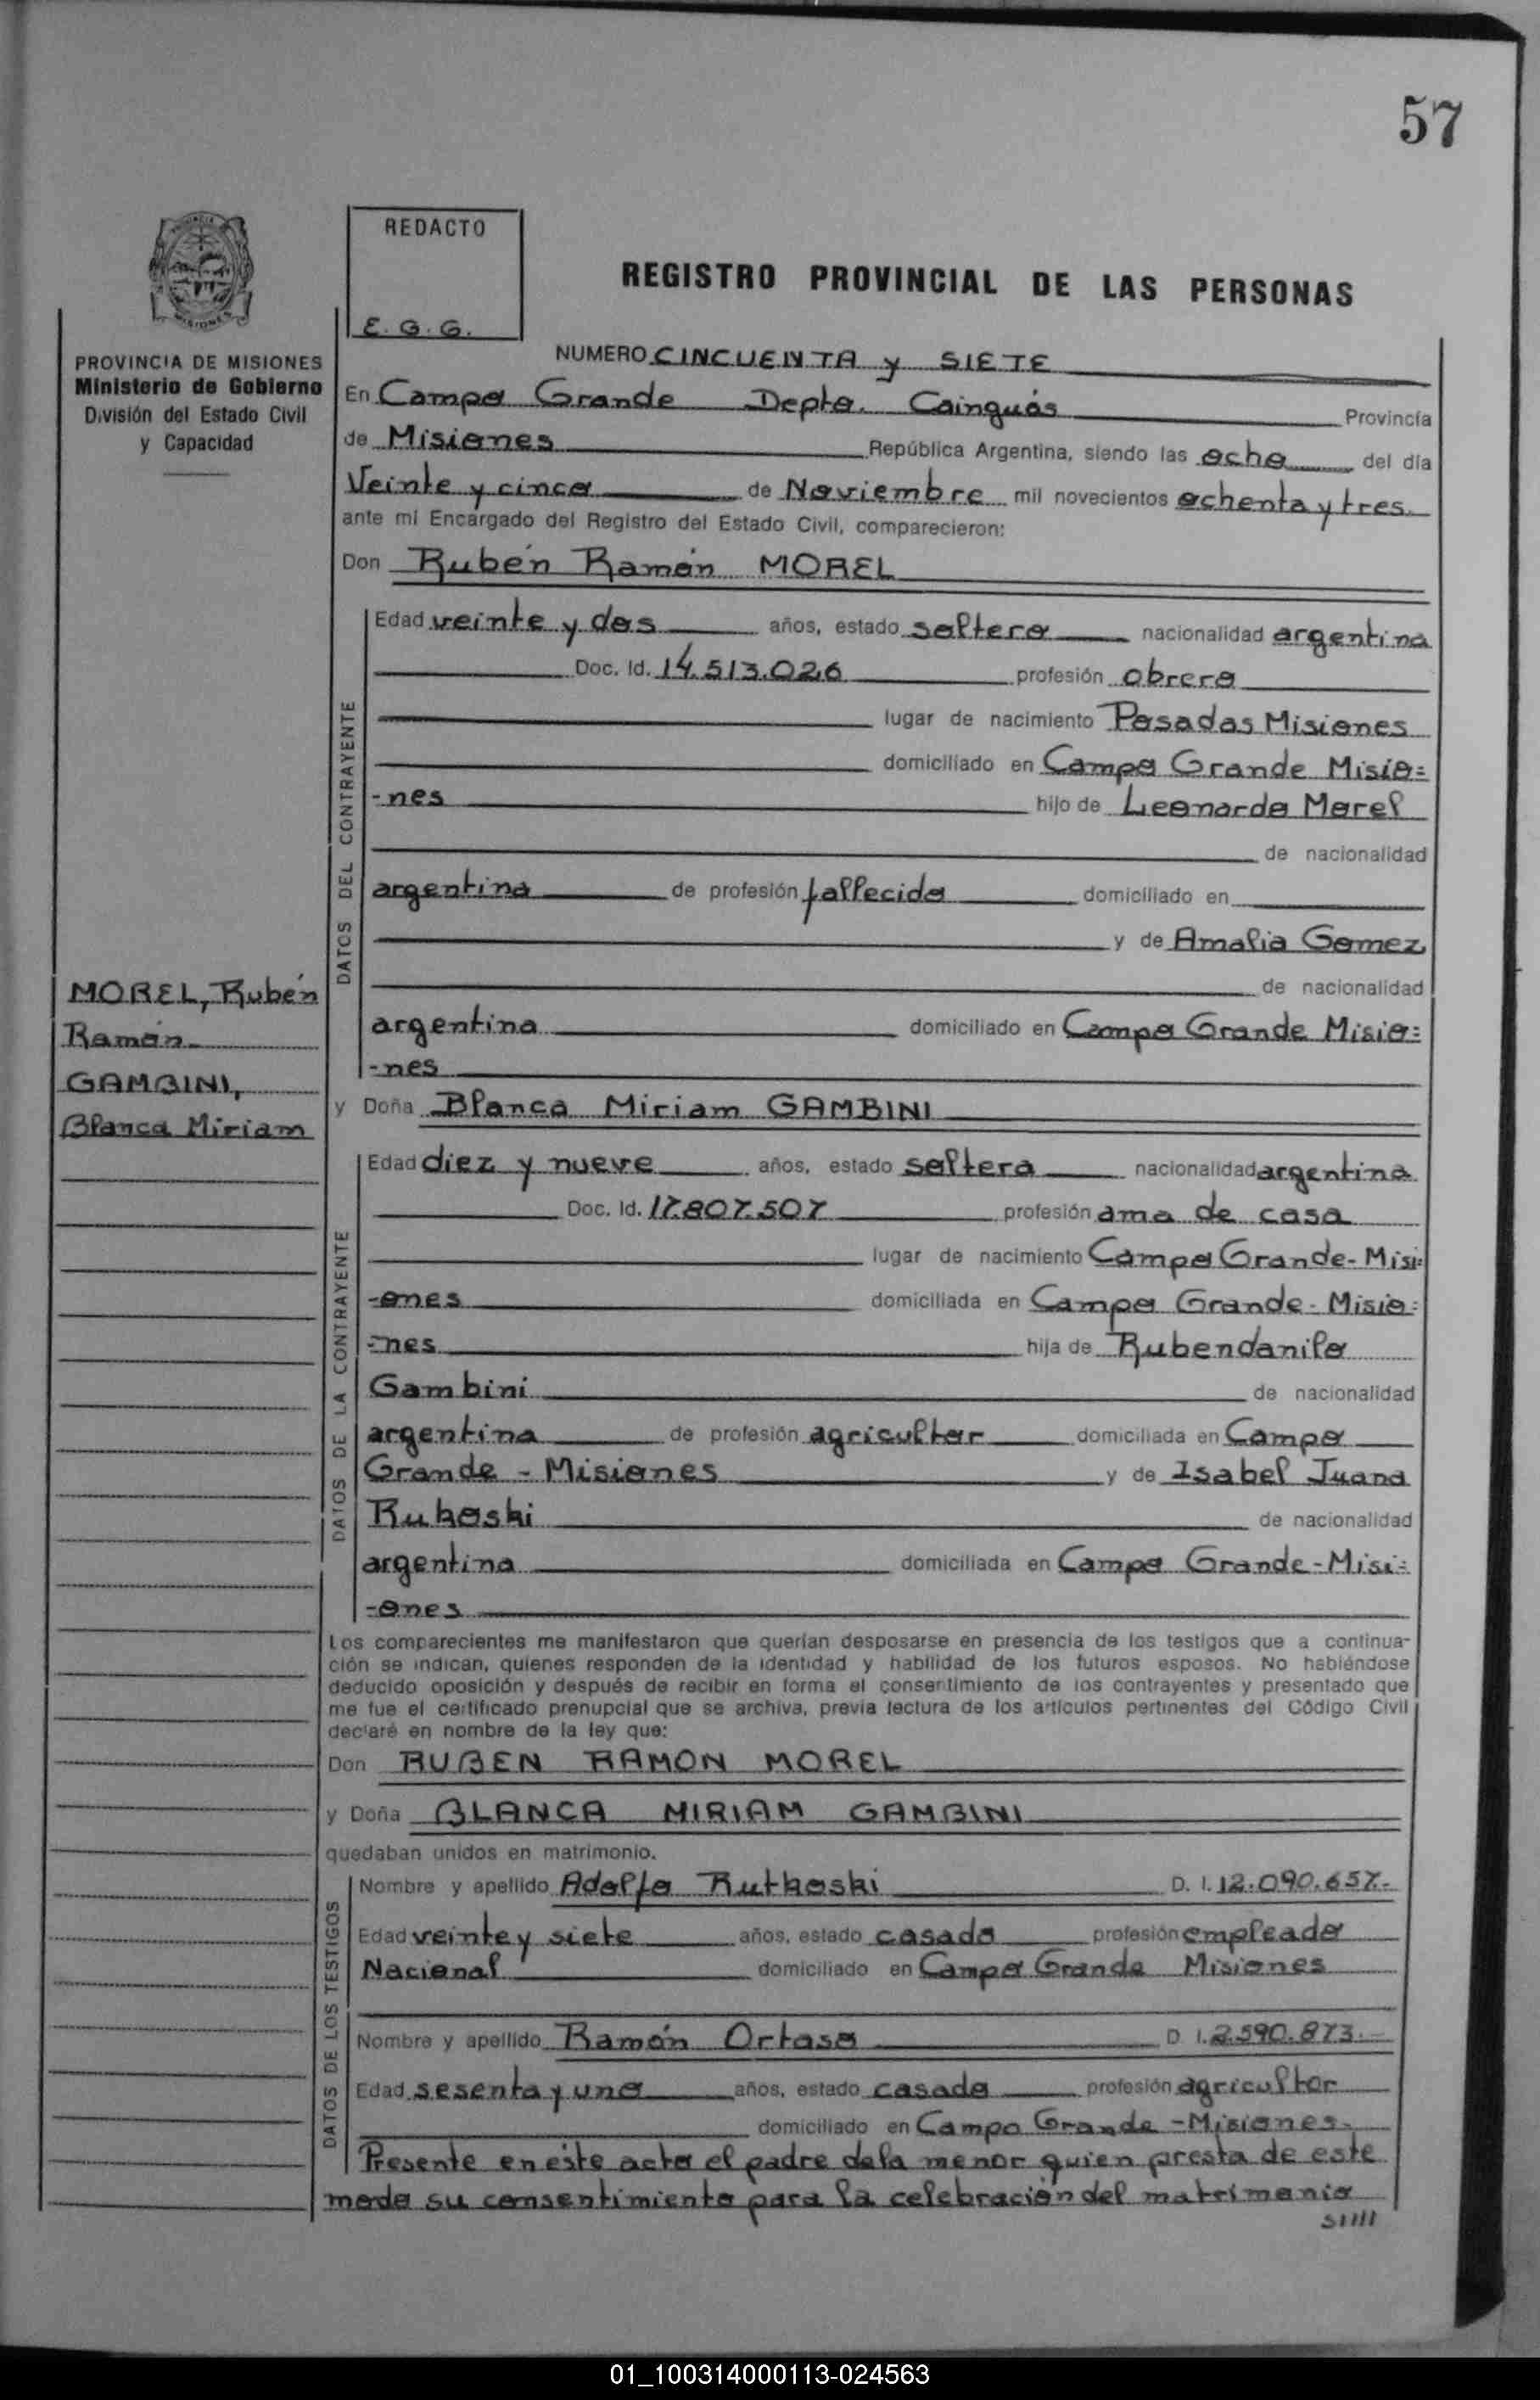 57
REDACTO
E. G. G.
REGISTRO PROVINCIAL DE LAS PERSONAS
PROVINCIA DE MISIONES
Ministerio de Gobierno
División del Estado Civil
y Capacidad
NUMERO CINCUENTA y SIETE
En Campo Grande Depto. Cainguás Provincia
de Misiones República Argentina, siendo las ocho del día
Veinte y cinco de Noviembre mil novecientos ochenta y tres
ante mi Encargado del Registro del Estado Civil, comparecieron:
Don Rubén Ramón MOREL
DATOS DEL CONTRAYENTE
Edad veinte y dos años, estado soltero nacionalidad argentina
Doc. Id. 14.513.026 profesión obrero
lugar de nacimiento Posadas Misiones
domiciliado en Campo Grande Misio=
-nes hijo de Leonardo Morel
de nacionalidad
argentina de profesión fallecido domiciliado en
y de Amalia Gomez
de nacionalidad
argentina domiciliado en Campo Grande Misio=
-nes
MOREL, Rubén
Ramón
GAMBINI,
Blanca Miriam
y Doña Blanca Miriam GAMBINI
DATOS DE LA CONTRAYENTE
Edad diez y nueve años, estado soltera nacionalidad argentina
Doc. Id. 17.807.507 profesión ama de casa
lugar de nacimiento Campo Grande- Misi=
-ones domiciliada en Campo Grande - Misio=
=nes hija de Rubendanilo
Gambini de nacionalidad
argentina de profesión agricultor domiciliada en Campo
Grande - Misiones y de Isabel Juana
Rukoski de nacionalidad
argentina domiciliada en Campo Grande - Misi=
-ones
Los comparecientes me manifestaron que querían desposarse en presencia de los testigos que a continua-
ción se indican, quienes responden de la identidad y habilidad de los futuros esposos. No habiéndose
deducido oposición y después de recibir en forma el consentimiento de los contrayentes y presentado que
me fue el certificado prenupcial que se archiva, previa lectura de los artículos pertinentes del Código Civil
declaré en nombre de la ley que:
Don RUBEN RAMON MOREL
y Doña BLANCA MIRIAM GAMBINI
quedaban unidos en matrimonio.
DATOS DE LOS TESTIGOS
Nombre y apellido Adolfo Rutkoski D. I. 12.090.657.-
Edad veinte y siete años, estado casado profesión empleado
Nacional domiciliado en Campo Grande Misiones
Nombre y apellido Ramón Ortaso D. I. 2.590.873.-
Edad sesenta y uno años, estado casado profesión agricultor
domiciliado en Campo Grande - Misiones.
Presente en este acto el padre de la menor quien presta de este
modo su consentimiento para la celebración del matrimonio
01_100314000113-024563